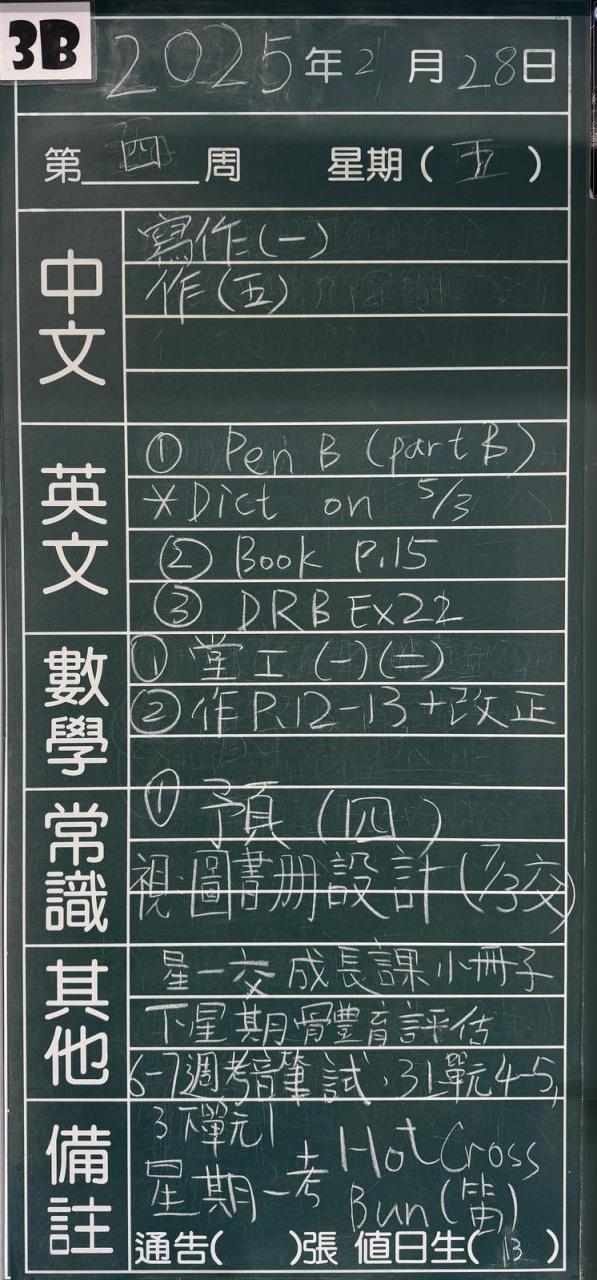 3B
2025年2月28日
第四周 星期(五)
中文
寫作(一)
作(五)
英文
① Pen B (part B)
*Dict on 5/3
② Book P.15
③ DRB Ex22
數學
① 堂工 (一)(二)
② 作P.12-13+改正
常識
① 預(四)
視·圖書册設計(7/3交)
其他
星一交成長課小冊子
下星期體育評估
6-7週考音筆試,3上單元4-5,
備註
3下單元1
星期一考 Hot Cross
Bun(笛)
通告( )張 值日生(13)